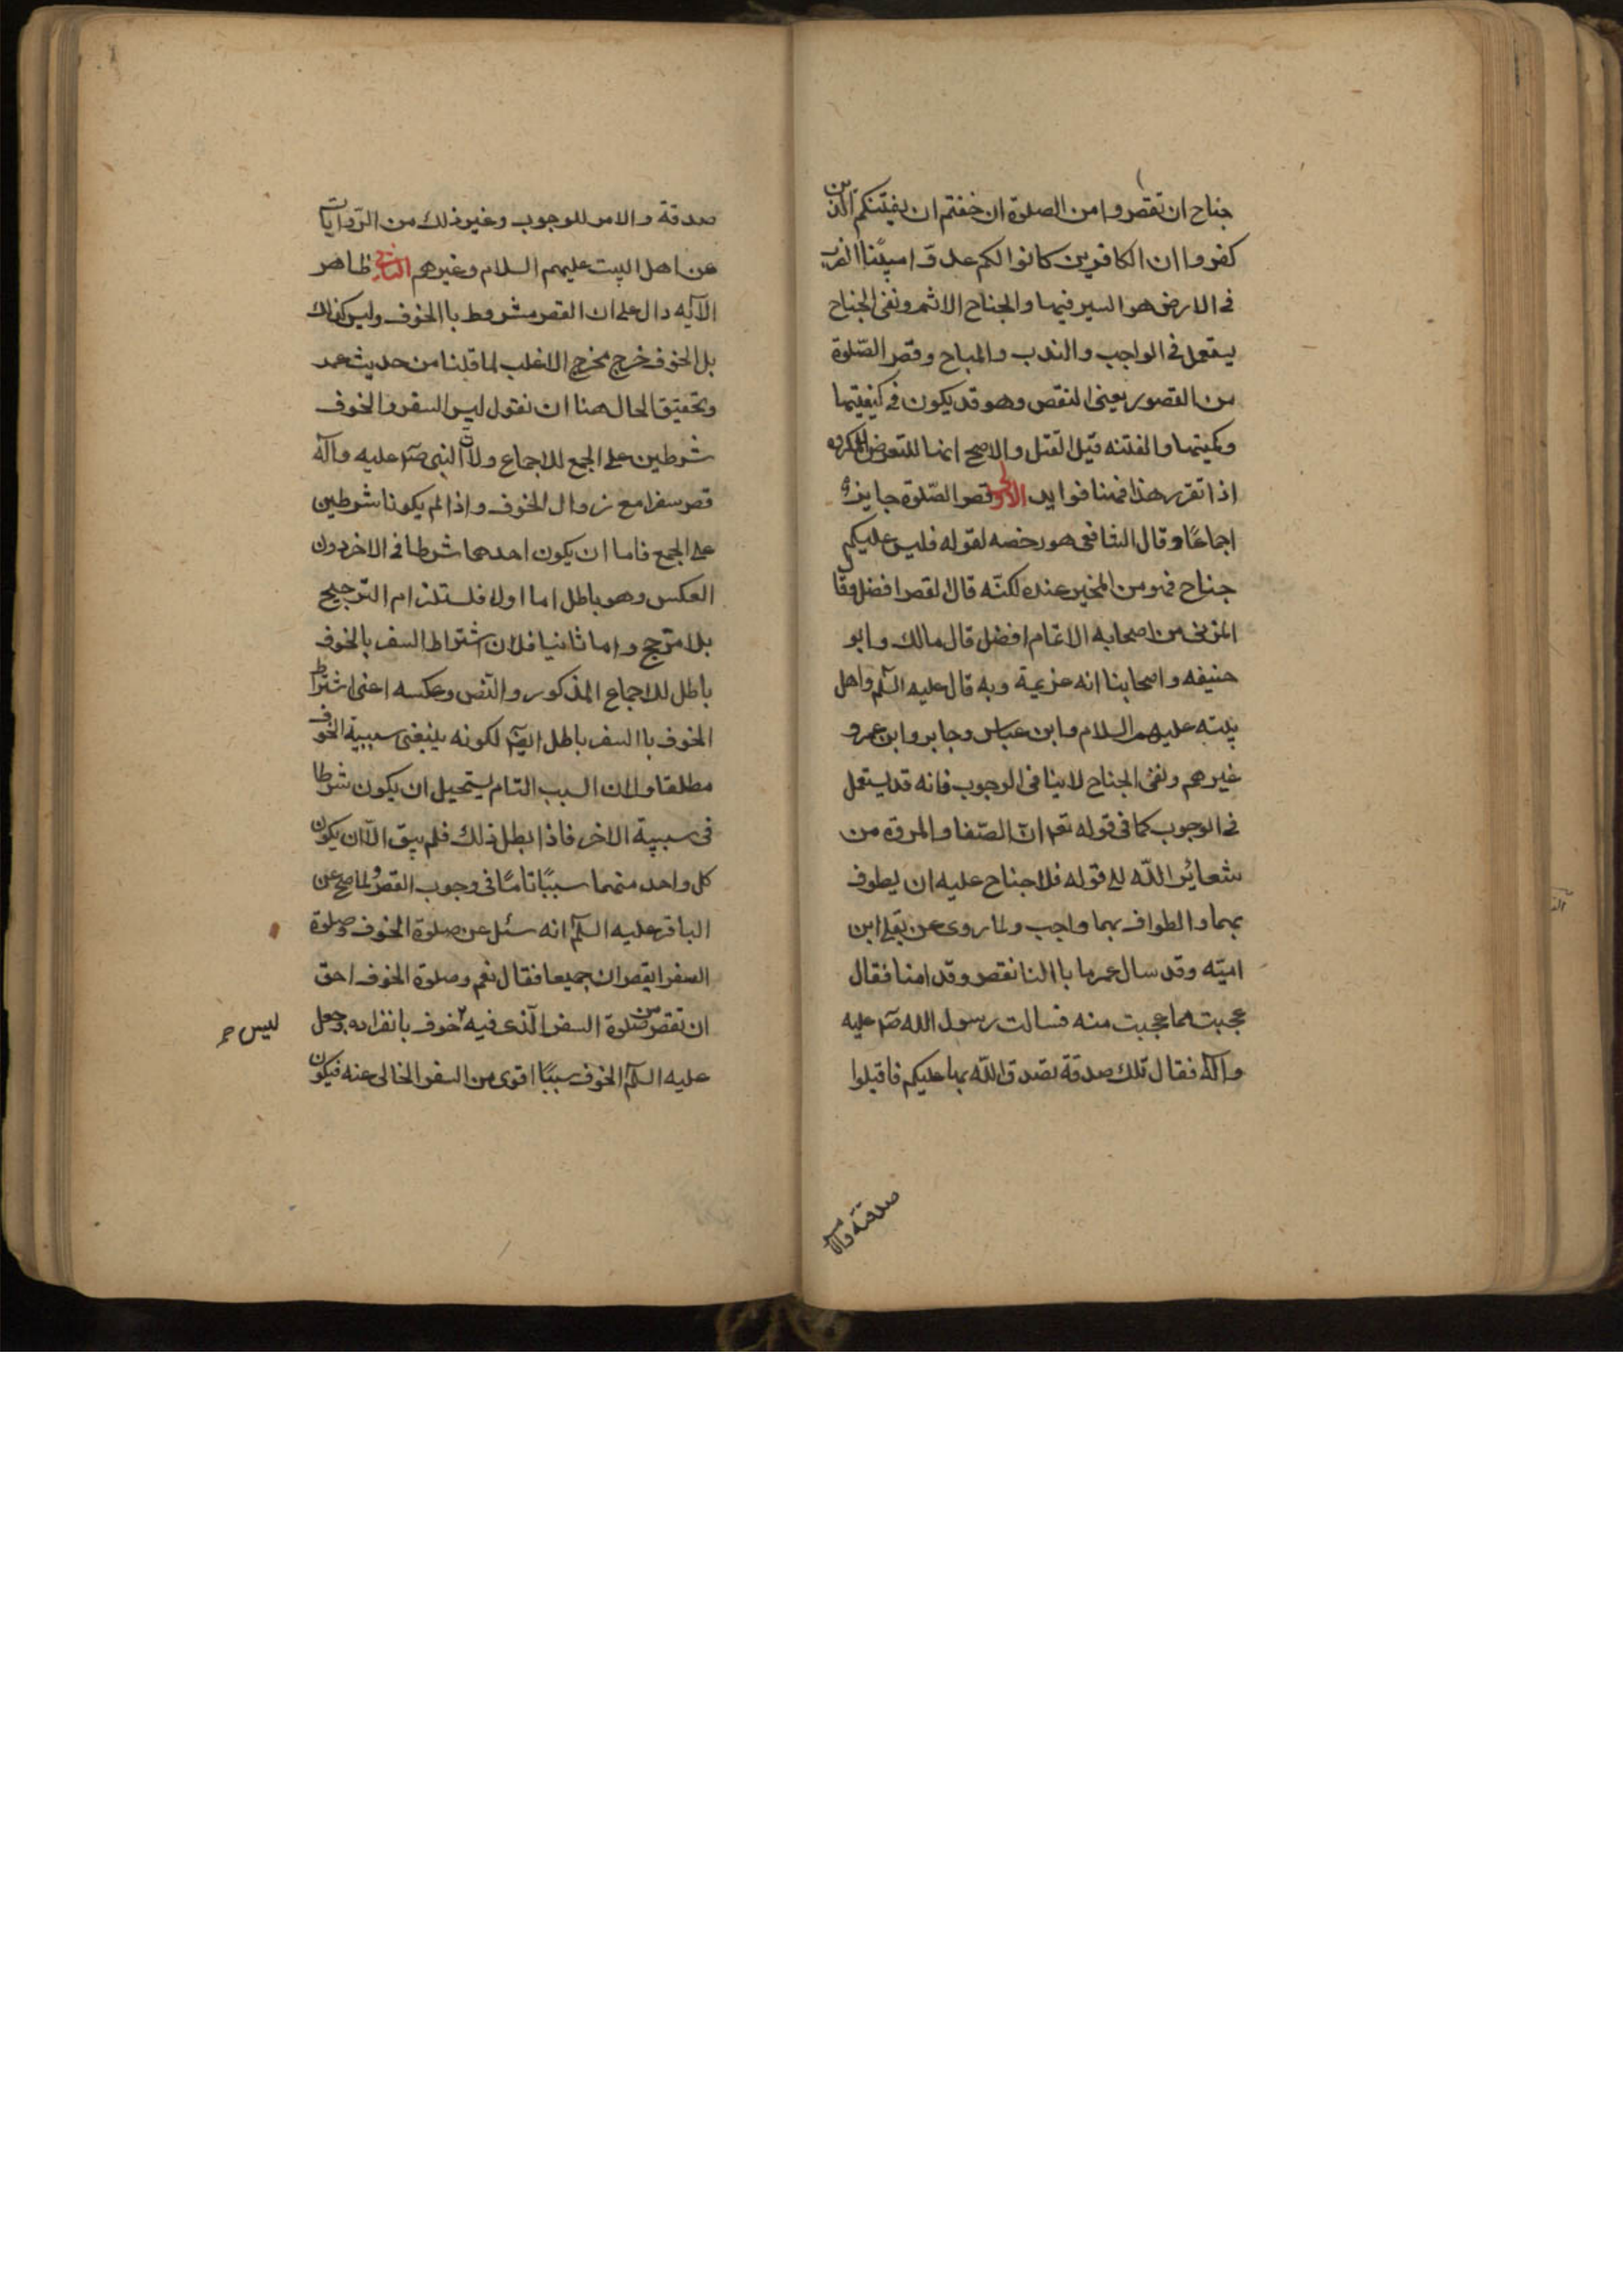 جناح ان تقصروا من الصلوة ان خفتم ان يفتنكم الذين
كفروا ان الكافرين كانوا لكم عدوّا مبيّنا الضرب
فى الارض هو السير فيها والجناح الاثم ونفى الجناح
يستعمل فى الواجب والندب والمباح وقصر الصّلوة
من القصور بمعنى النقص وهو قد يكون فى كيفيتها
وكميتها والفتنه قيل القتل والاصح انها للتعرض للمكروه
اذا تقرر هذا فهنا فوايد الاولى قصر الصّلوة جايز
اجماعًا وقال الشافعى هو رخصه لقوله فليس عليكم
جناح فهو من المخير عنده لكنّه قال القصر افضل وقا
المزنى من اصحابه الاتمام افضل قال مالك وابو
حنيفه واصحابنا انه عزيمة وبه قال عليه السلم واهل
بيته عليهم السلام وابن عباس وجابر وابن عمر و
غيرهم ونفى الجناح لا ينافى الوجوب فانه قد يستعمل
فى الوجوب كما فى قوله تعم انّ الصّفا والمروة من
شعائر اللّه الى قوله فلا جناح عليه ان يطوف
بهما والطواف بهما واجب ولما روى عن يعلى ابن
اميّه وقد سال عمر ما باالنا نقصر وقد امنا فقال
عجبت مما عجبت منه فسالت رسول الله صم عليه
وآله فقال تلك صدقة تصدق اللّه بها عليكم فاقبلوا
صدقته والامر
صدقة والامر للوجوب وغير ذلك من الرّوايات
عن اهل البيت عليهم السلام وغيرهم الثانى ظاهر
الآيه دال على ان القصر مشروط باالخوف وليس كذلك
بل الخوف خرج مخرج الاغلب لما قلنا من حديث عمر
وتحقيق الحال هنا ان نقول ليس السفر والخوف
شرطين على الجمع للاجماع ولانّ النبى صم عليه وآله
قصر سفرا مع زوال الخوف واذا لم يكونا شرطين
على الجمع فاما ان يكون احدهما شرطا فى الاخر دون
العكس وهو باطل اما اولا فلستلزام التّرجيح
بلا مرّجح واما ثانيا فلان اشتراط السفر بالخوف
باطل للاجماع المذكور والنّص وعكسه اعنى اشتراط
الخوف باالسفر باطل ايضا لكونه ينبغى سببية الخوف
مطلقا ولان السبب التام يستحيل ان يكون شرطا
فى سببية الاخر فاذا بطل ذلك فلم يبق الّا ان يكون
كل واحد منهما سببًا تامًا فى وجوب القصر ولما صح عن
الباقر عليه السلم انه سئل عن صلوة الخوف وصلوة
السفر ايقصران جميعا فقال نعم وصلوة الخوف احق
ان تقصر من صلوة السفر الّذى فيه خوف بانفراده وجعل
ليس
عليه السلم الخوف سببًا اقوى من السفر الخالى عنه فيكون